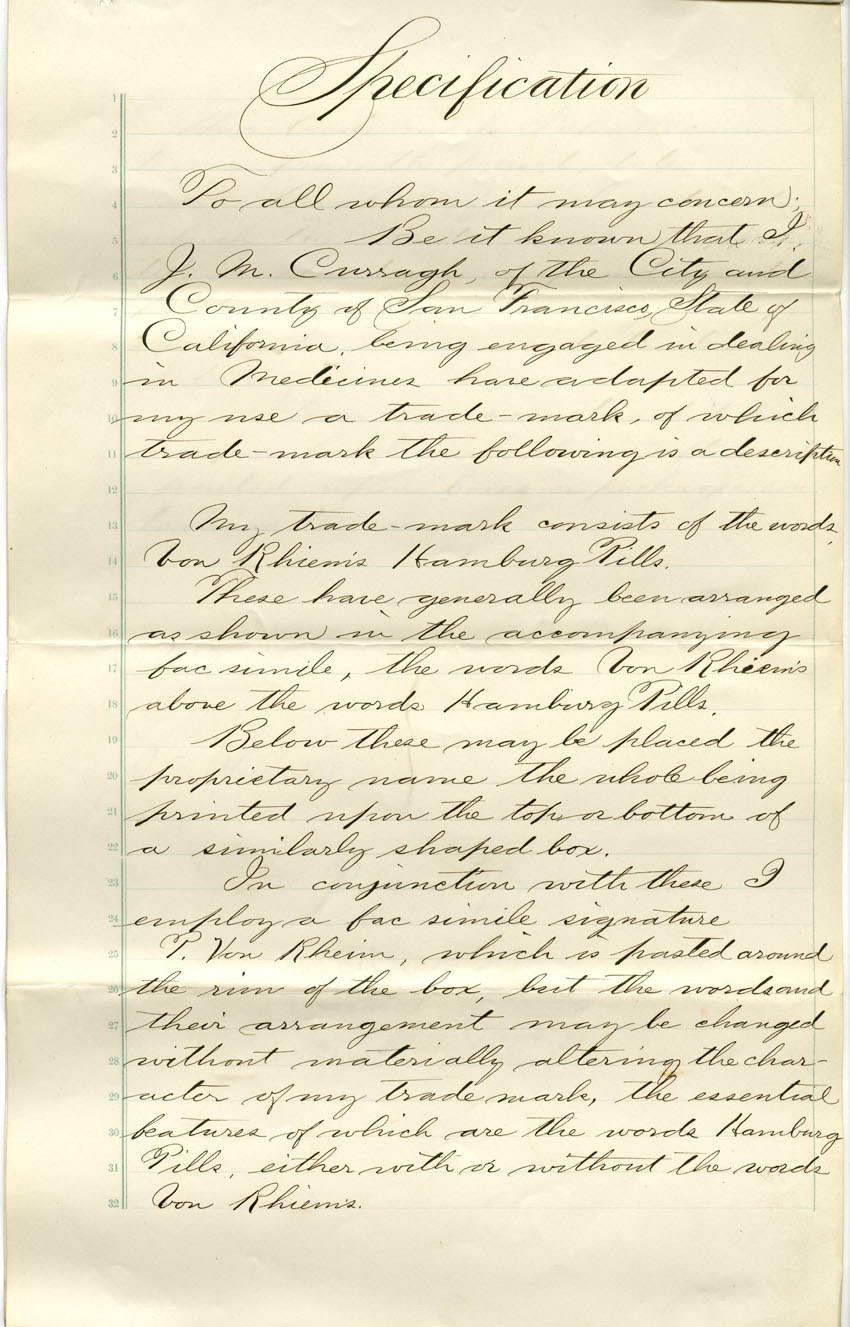 Specification
1
2
3
4 To all whom it may concern;
5 Be it known that I,
6 J. M. Curragh, of the City and
7 County of San Francisco, State of
8 California, being engaged in dealing
9 in Medicines have adapted for
10 my use a trade-mark, of which
11 trade-mark the following is a description
12
13 My trade-mark consists of the words,
14 Von Rhiem's Hamburg Pills.
15 These have generally been arranged
16 as shown in the accompanying
17 fac simile, the words Von Rhiem's
18 above the words Hamburg Pills.
19 Below these may be placed the
20 proprietary name the whole being
21 printed upon the top or bottom of
22 a similarly shaped box.
23 In conjunction with these I
24 employ a fac simile signature
25 P. Von Rheim, which is pasted around
26 the rim of the box, but the words and
27 their arrangement may be changed
28 without materially altering the char-
29 acter of my trade mark, the essential
30 features of which are the words Hamburg
31 Pills, either with or without the words
32 Von Rhiem's.